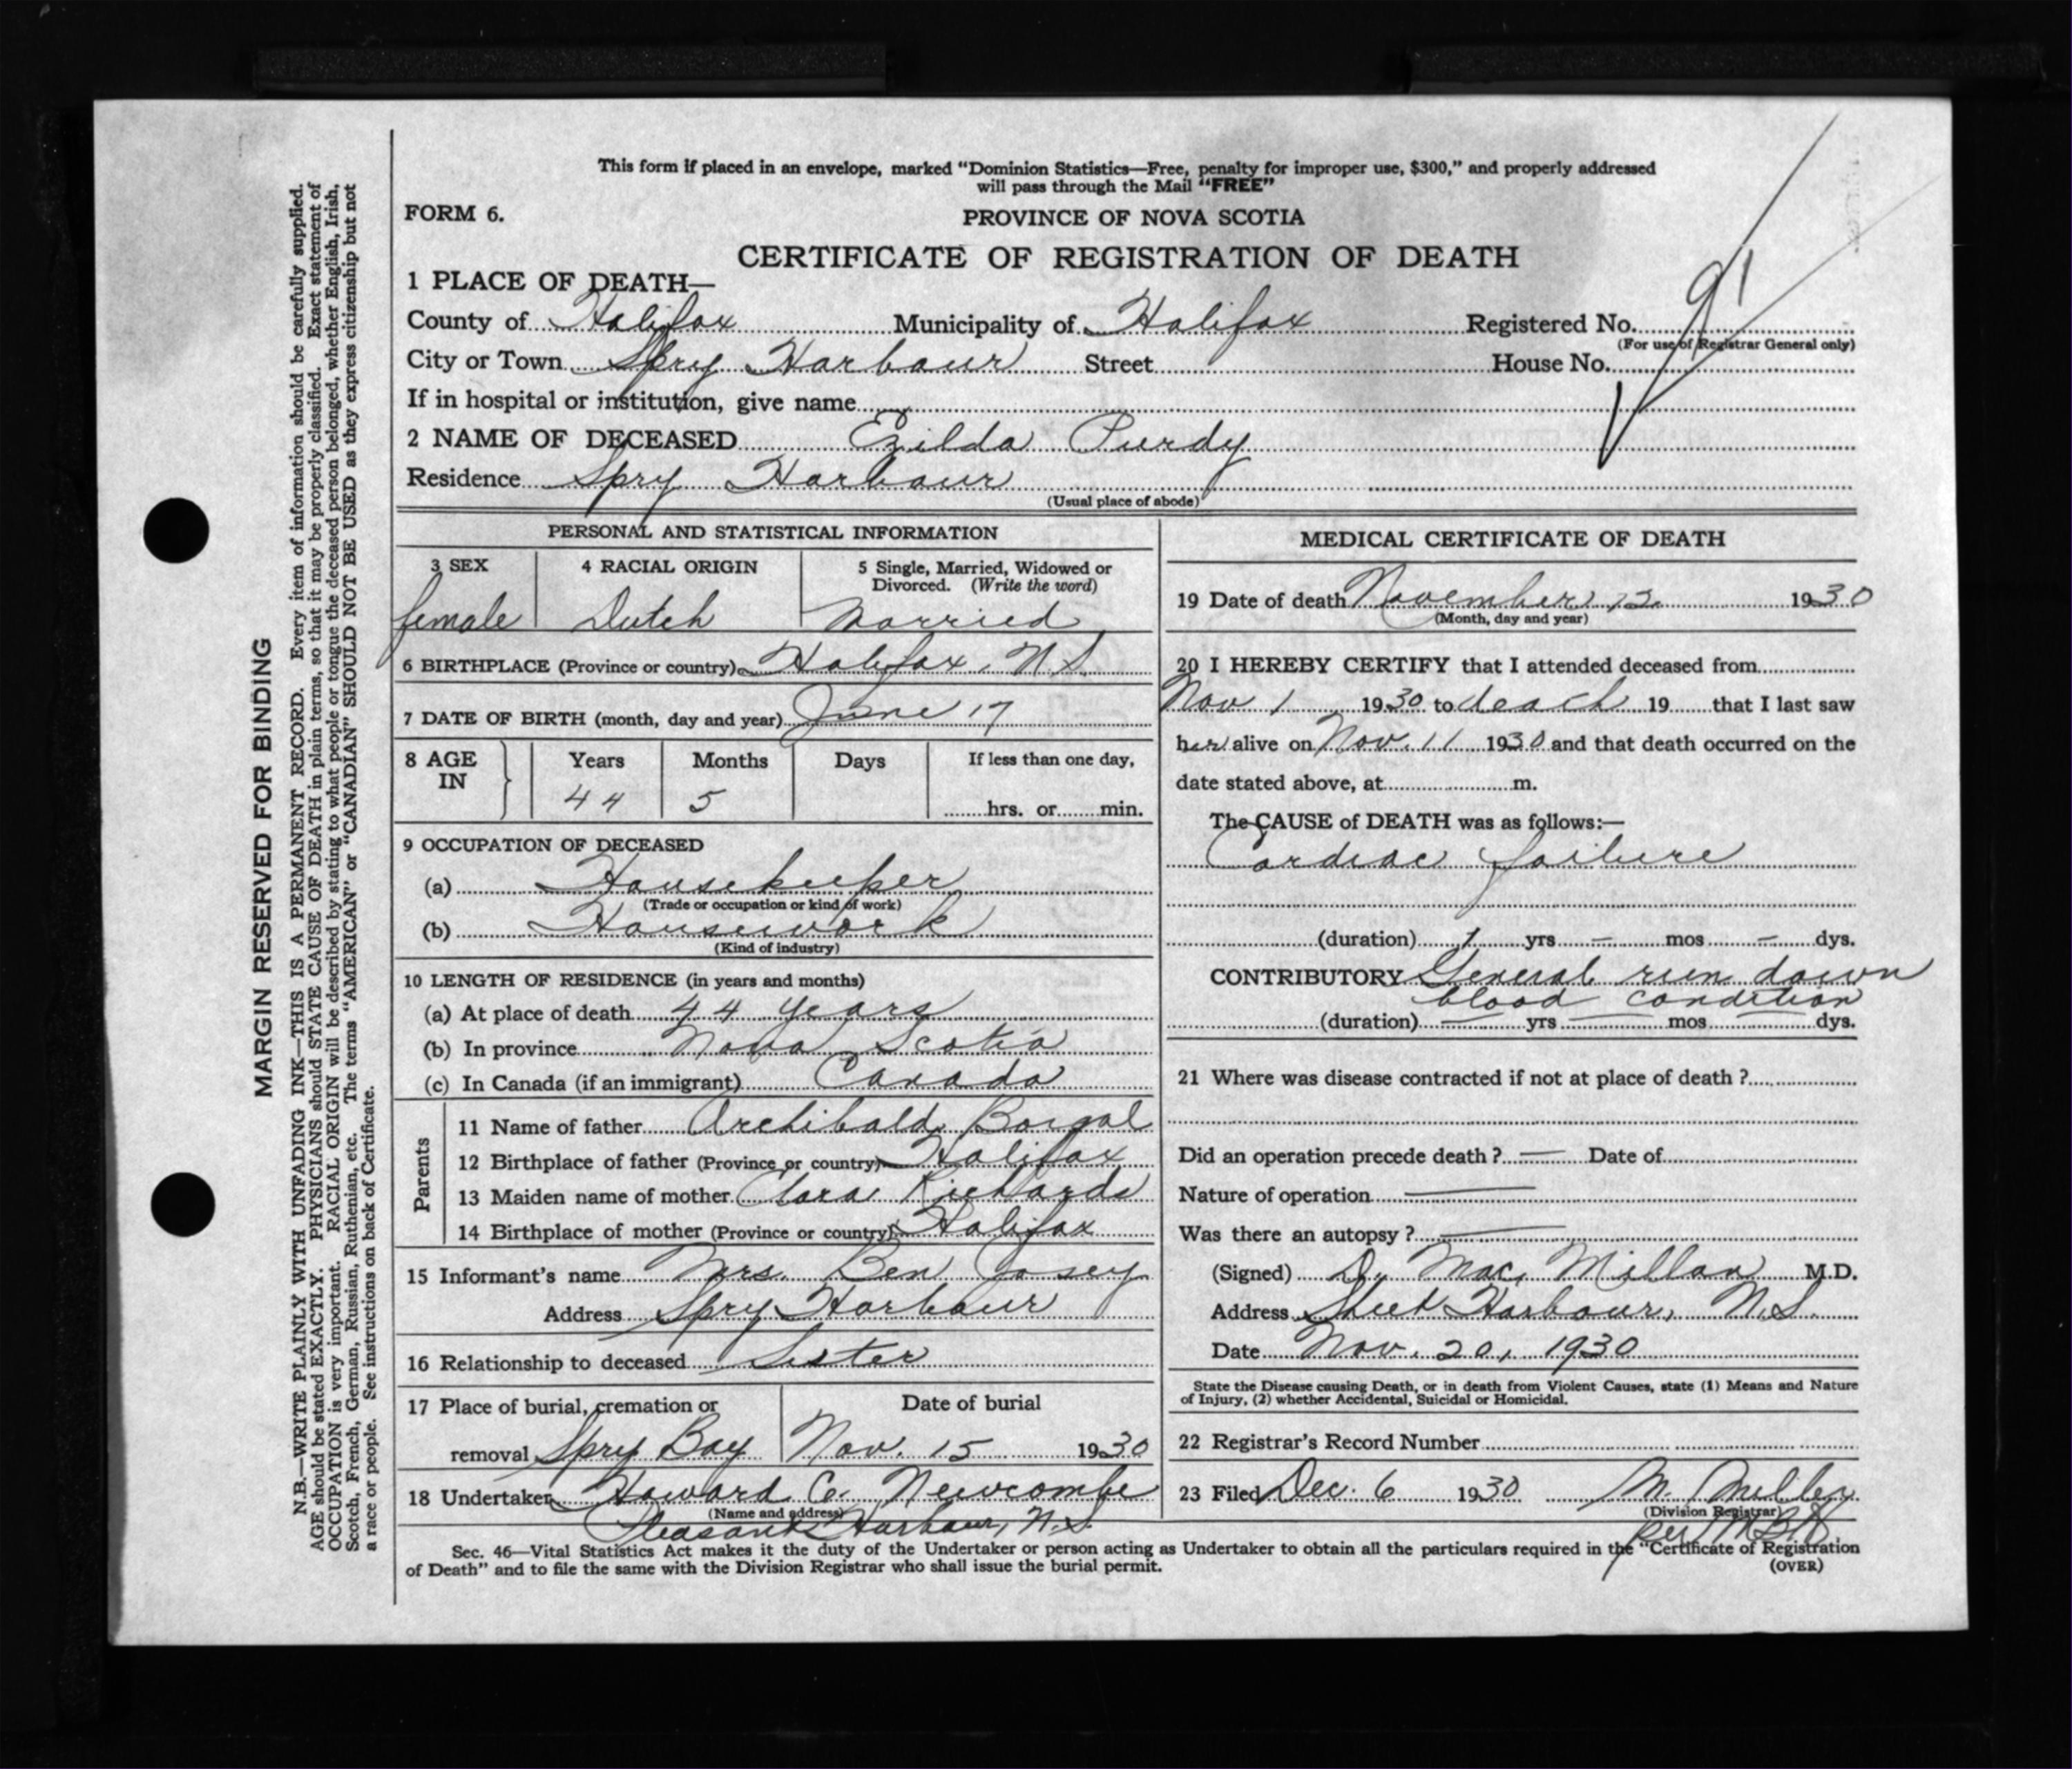 This form if placed in an envelope, marked "Dominion Statistics—Free, penalty for improper use, $300," and properly addressed
will pass through the Mail "FREE"
FORM 6.
PROVINCE OF NOVA SCOTIA
CERTIFICATE OF REGISTRATION OF DEATH
1 PLACE OF DEATH—
91
County of Halifax Municipality of Halifax Registered No.
(For use of Registrar General only)
City or Town Spry Harbour Street House No.
If in hospital or institution, give name
2 NAME OF DECEASED Ezilda Purdy
Residence Spry Harbour
(Usual place of abode)
PERSONAL AND STATISTICAL INFORMATION
3 SEX 4 RACIAL ORIGIN 5 Single, Married, Widowed or
Divorced. (Write the word)
female Dutch Married
6 BIRTHPLACE (Province or country) Halifax, N.S.
7 DATE OF BIRTH (month, day and year) June 17
8 AGE IN Years Months Days If less than one day,
44 5 hrs. or min.
9 OCCUPATION OF DECEASED
(a) Housekeeper
(Trade or occupation or kind of work)
(b) Housework
(Kind of industry)
10 LENGTH OF RESIDENCE (in years and months)
(a) At place of death 44 years
(b) In province Nova Scotia
(c) In Canada (if an immigrant) Canada
Parents
11 Name of father Archibald Boigal
12 Birthplace of father (Province or country) Halifax
13 Maiden name of mother Clara Richards
14 Birthplace of mother (Province or country) Halifax
15 Informant's name Mrs. Ben Josey
Address Spry Harbour
16 Relationship to deceased Sister
17 Place of burial, cremation or Date of burial
removal Spry Bay Nov. 15 1930
18 Undertaker Howard C. Newcombe
(Name and address)
Pleasant Harbour, N.S.
MEDICAL CERTIFICATE OF DEATH
19 Date of death November 12 1930
(Month, day and year)
20 I HEREBY CERTIFY that I attended deceased from
Nov 1 1930 to death 19 that I last saw
her alive on Nov. 11 1930 and that death occurred on the
date stated above, at m.
The CAUSE of DEATH was as follows:—
Cardiac failure
(duration) 1 yrs – mos – dys.
CONTRIBUTORY General run down
blood condition
(duration) — yrs — mos — dys.
21 Where was disease contracted if not at place of death ?
Did an operation precede death ? — Date of
Nature of operation —
Was there an autopsy ? —
(Signed) D. Mac Millan M.D.
Address Sheet Harbour, N.S.
Date Nov. 20, 1930
State the Disease causing Death, or in death from Violent Causes, state (1) Means and Nature
of Injury, (2) whether Accidental, Suicidal or Homicidal.
22 Registrar's Record Number
23 Filed Dec. 6 1930 M. Miller
(Division Registrar)
per
Sec. 46—Vital Statistics Act makes it the duty of the Undertaker or person acting as Undertaker to obtain all the particulars required in the "Certificate of Registration
of Death" and to file the same with the Division Registrar who shall issue the burial permit.
(OVER)
MARGIN RESERVED FOR BINDING
N.B.—WRITE PLAINLY WITH UNFADING INK—THIS IS A PERMANENT RECORD. Every item of information should be carefully supplied.
AGE should be stated EXACTLY. PHYSICIANS should STATE CAUSE OF DEATH in plain terms, so that it may be properly classified. Exact statement of
OCCUPATION is very important. RACIAL ORIGIN will be described by stating to what people or tongue the deceased person belonged, whether English, Irish,
Scotch, French, German, Russian, Ruthenian, etc. The terms "AMERICAN" or "CANADIAN" SHOULD NOT BE USED as they express citizenship but not
a race or people. See instructions on back of Certificate.